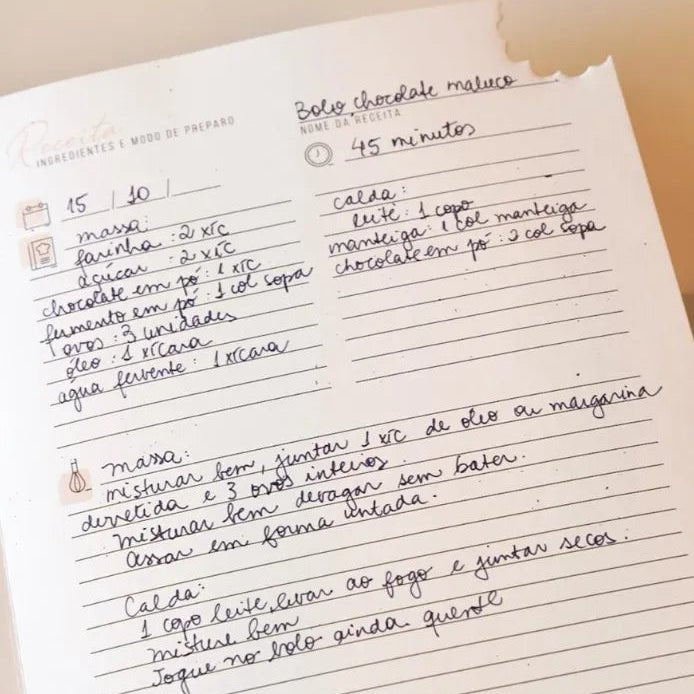 Receita
INGREDIENTES E MODO DE PREPARO
Bolo chocolate maluco
NOME DA RECEITA
45 minutos
15 / 10 /
massa:
farinha : 2 xíc
açúcar : 2 xíc
chocolate em pó : 1 xíc
fermento em pó : 1 col sopa
ovos : 3 unidades
óleo : 1 xícara
água fervente : 1 xícara
calda :
leite : 1 copo
manteiga : 1 col manteiga
chocolate em pó : 3 col sopa
massa :
misturar bem, juntar 1 xíc de oleo ou margarina
derretida e 3 ovos inteiros
misturar bem devagar sem bater.
assar em forma untada.
Calda :
1 copo leite, levar ao fogo e juntar secos.
misture bem
Jogue no bolo ainda quente